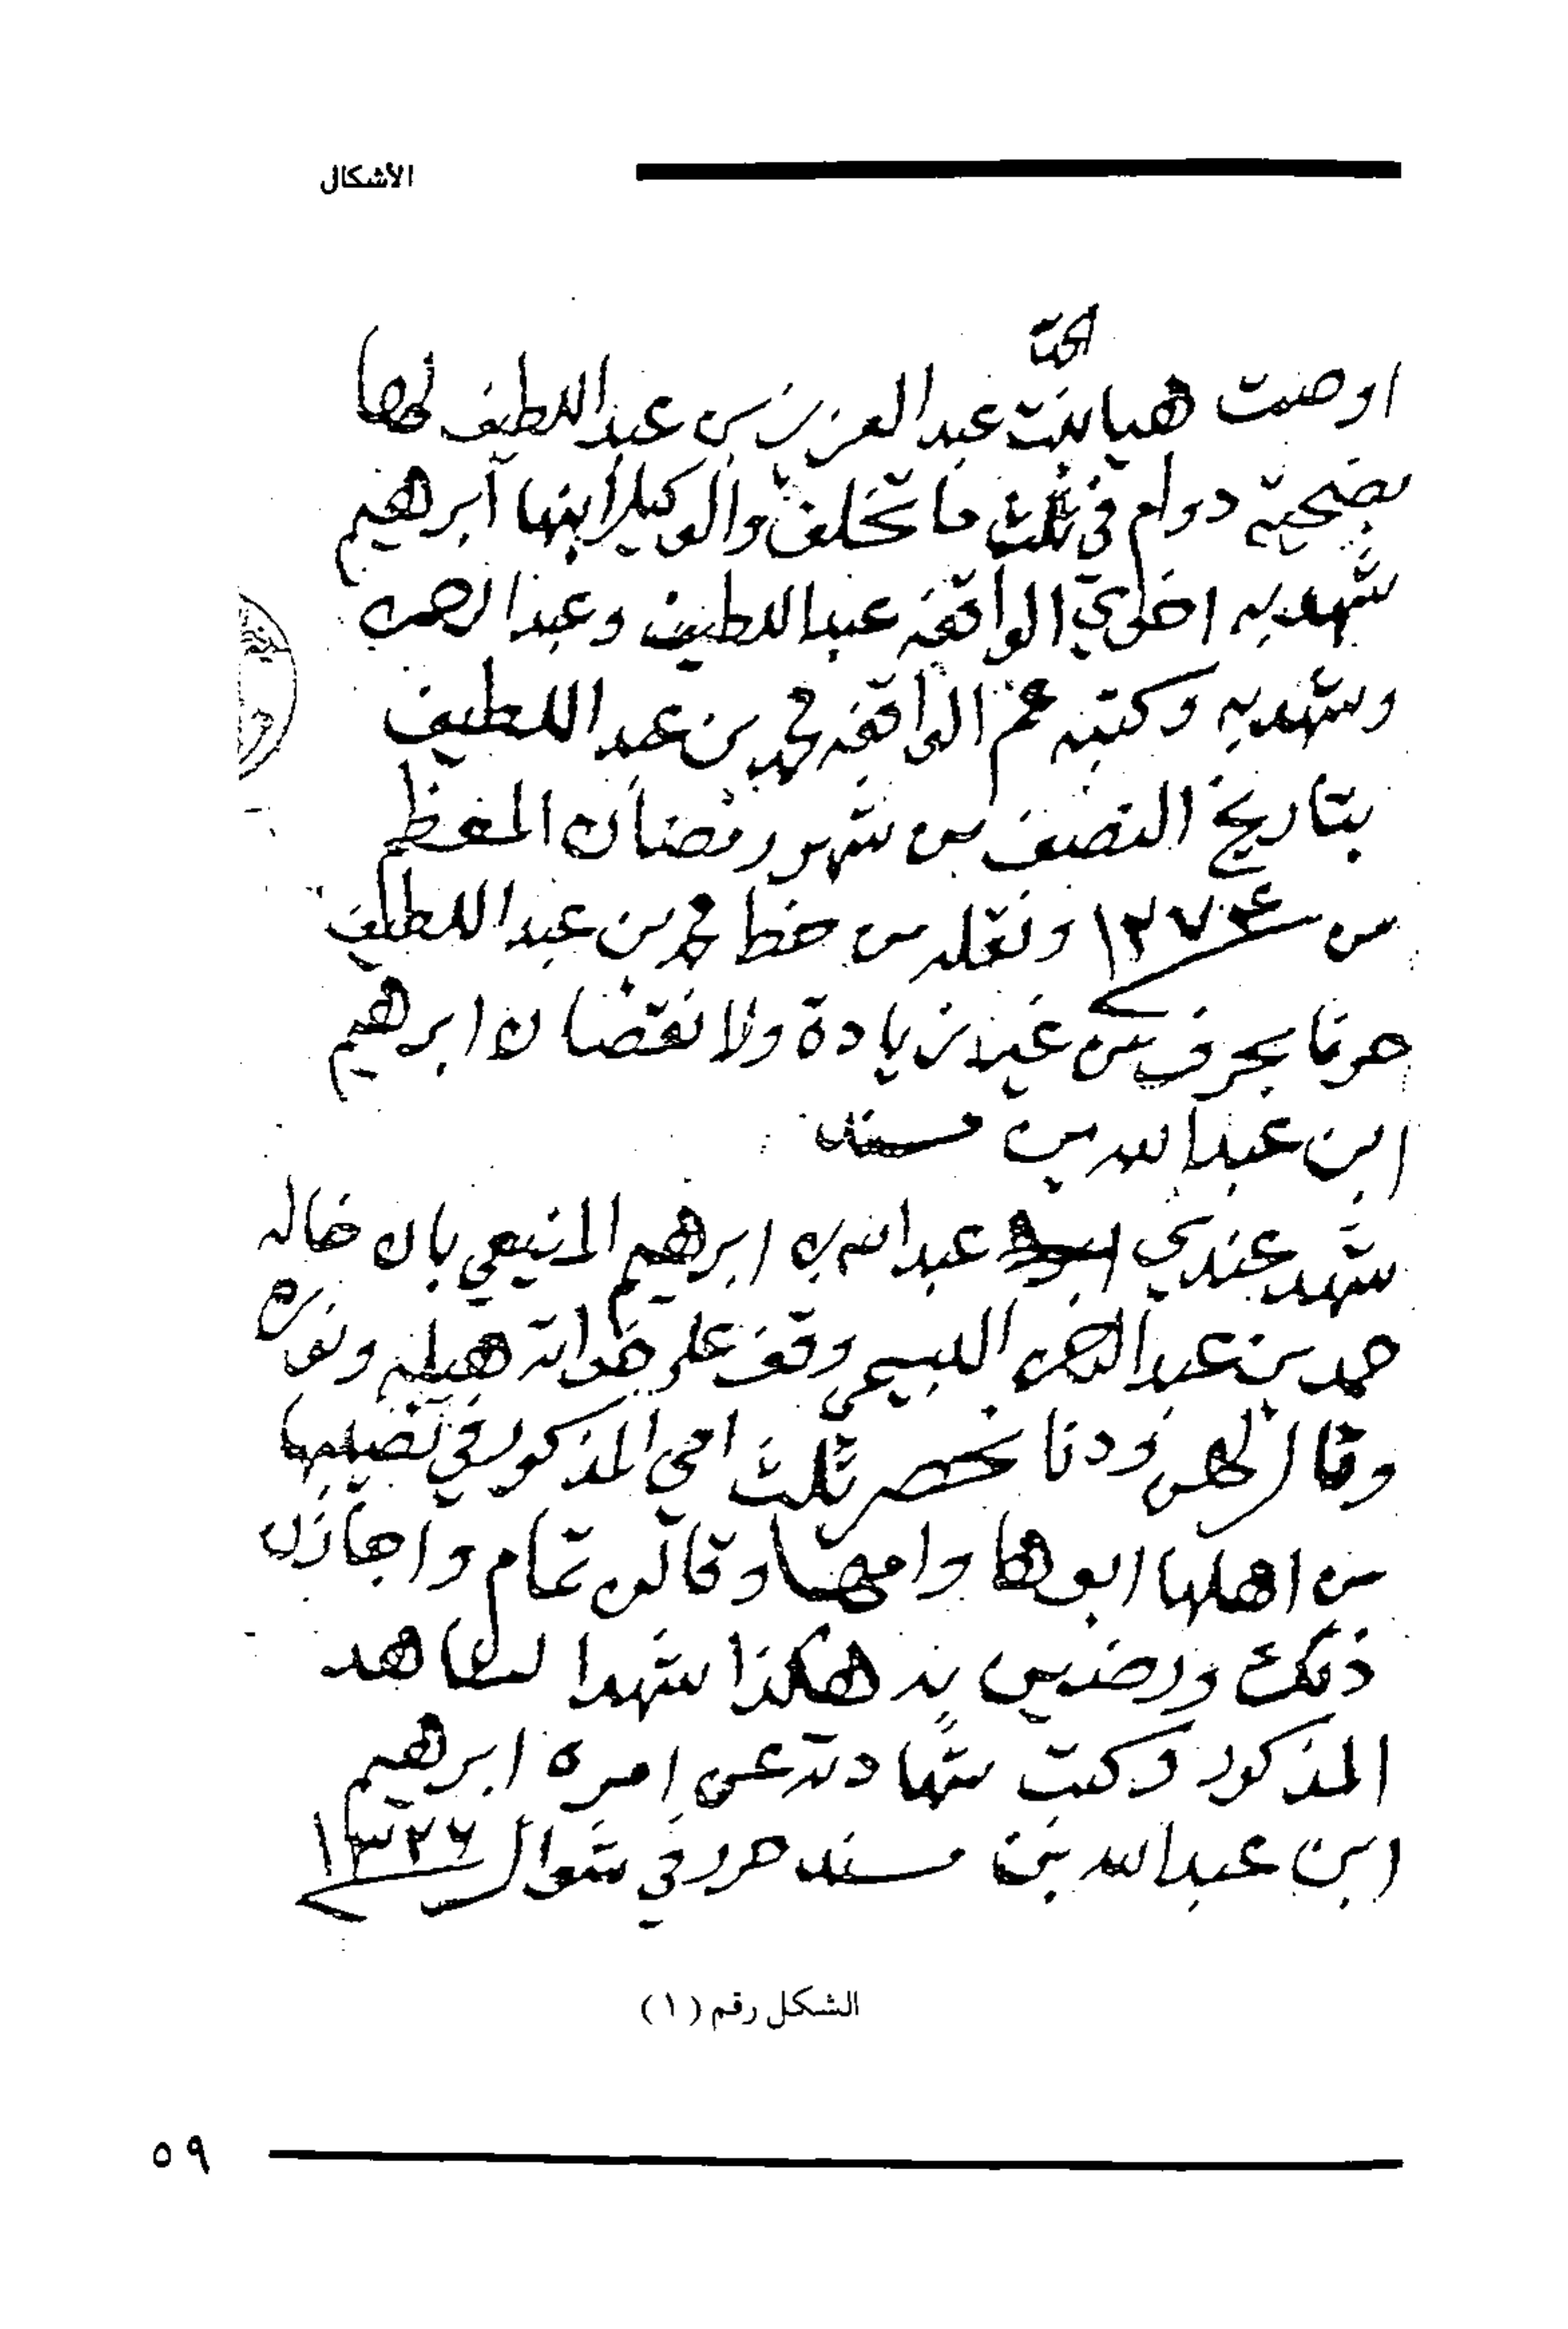 الأشكال
اوصت هيا بنت عبد العزيز بن عبد اللطيف لها
بضحية دوام في ثلث ما تخلف والوكيل ابنها ابرهيم
شهد به اخوي الواقفه عبد اللطيف وعبد الرحمن
وشهد به وكتبه عم الواقفه محمد بن عبد اللطيف
بتاريخ النصف من شهر رمضان المعظم
من ونقله من خط محمد بن عبد اللطيف
حرفا بحرف من غير زيادة ولا نقصان ابرهيم
ابن عبد الله بن مسند
شهد عندي عبد الله بن ابرهيم المنيعي بان خاله
حمد بن عبد الرحمن وقف على خواته هيله ونوره
وقال لهن ودنا ثلث امي المذكور في
من اهلها ابوها وامها وقالن تمام واجازن
ذلك ورضين به هكذا شهد الشاهد
المذكور وكتب شهادته عن امره ابرهيم
ابن عبد الله بن مسند حرر في شوال ١٣٢٦
الشكل رقم (١)
٥٩